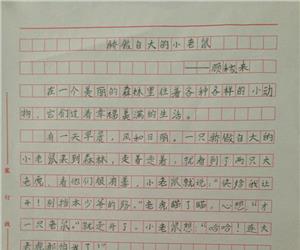 骄傲自大的小老鼠
——顾梭来
在一个美丽的森林里住着各种各样的小动
物，它们过着幸福美满的生活。
有一天早晨，风和日丽。一只骄傲自大的
小老鼠来到森林，走着走着，就看到了两只大
老虎，看他们很有善，小老鼠就说：“快给我让
开！别挡本少爷的路。”老虎瞄了瞄，心想：“才
一只老鼠。”就走开了。小老鼠想：“哈哈！连大
老虎都怕了我！”